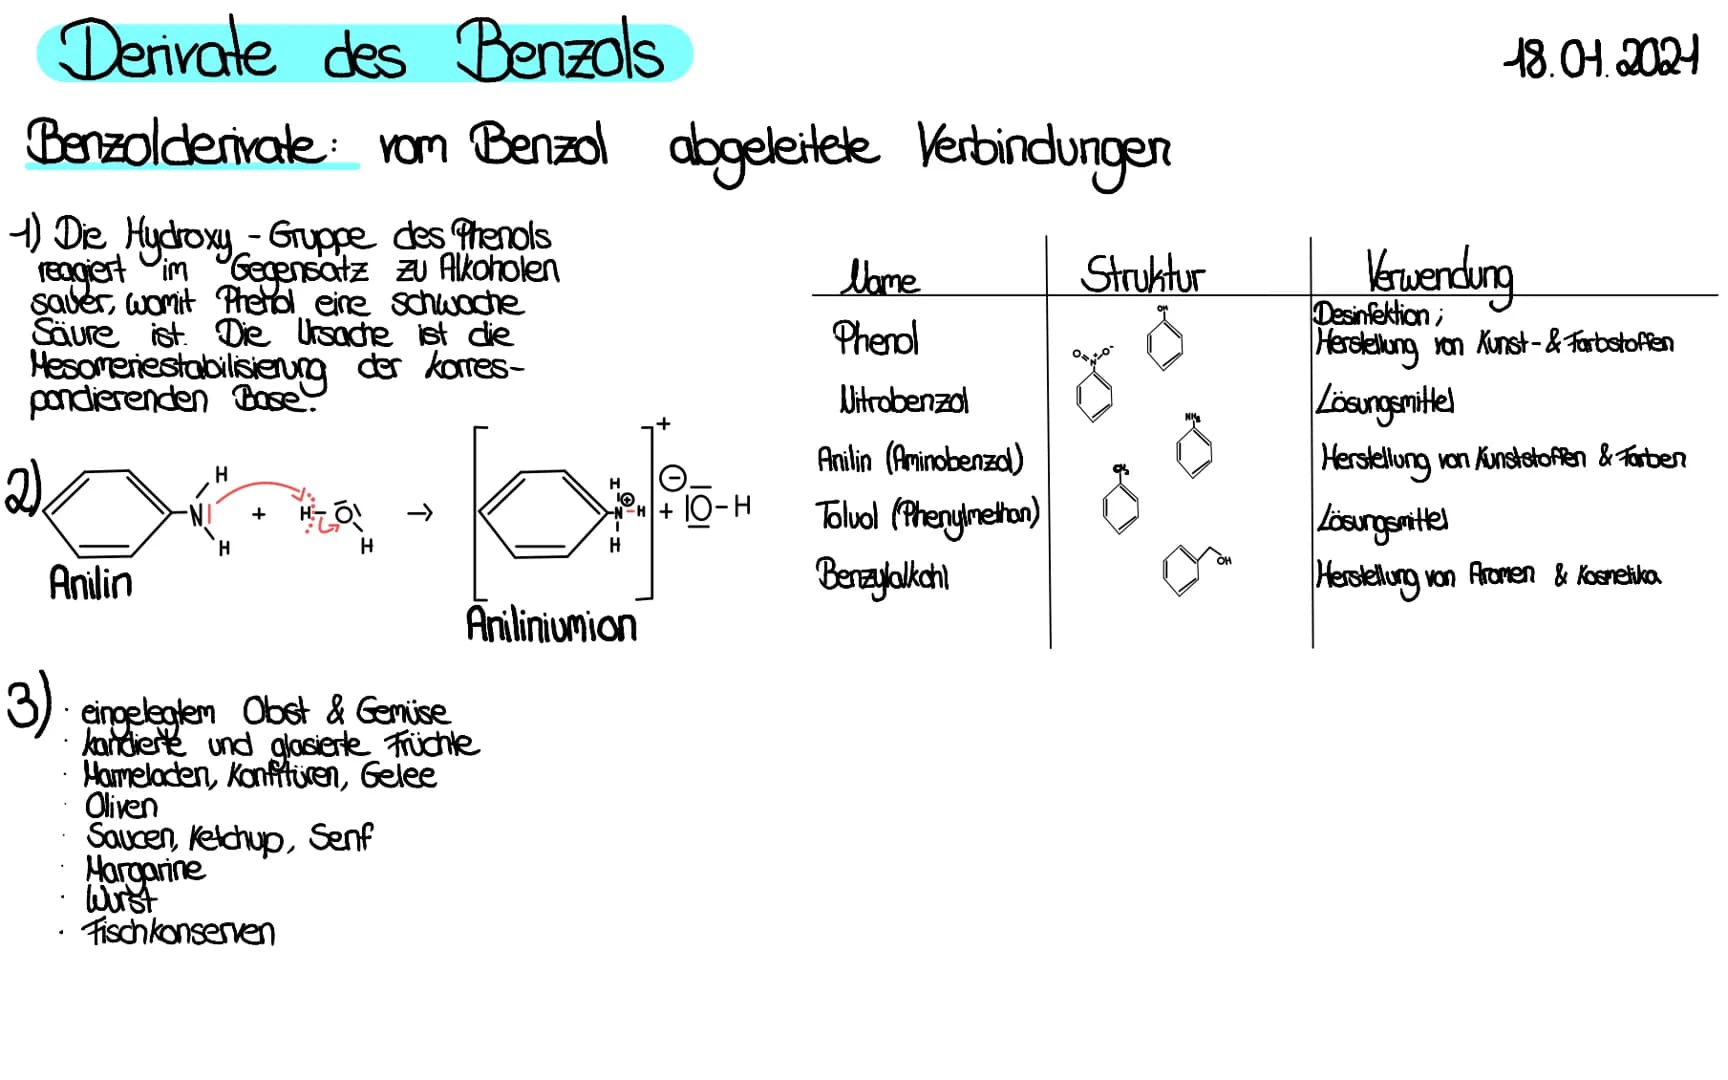 Derivate des Benzols
18.01.2021
Benzolderivate: vom Benzol abgeleitete Verbindungen
1) Die Hydroxy-Gruppe des Phenols
reagiert im Gegensatz zu Alkoholen
sauer, womit Phenol eine schwache
Säure ist. Die Ursache ist die
Mesomeriestabilisierung der korres-
pondierenden Base.
2)
H
N
H
+ H-O
H
→
H
N-H
H
+
⊕
⊖
+ |O-H
Anilin
Aniliniumion
3)
· eingelegtem Obst & Gemüse
· kandierte und glasierte Früchte
· Mameladen, Konfitüren, Gelee
· Oliven
· Saucen, Ketchup, Senf
· Margarine
· Wurst
· Fischkonserven
Name Struktur Verwendung
Phenol OH Desinfektion;
Herstellung von Kunst- & Farbstoffen
Nitrobenzol O N+ O- Lösungsmittel
Anilin (Aminobenzol) NH₂ Herstellung von Kunststoffen & Farben
Toluol (Phenylmethan) CH₃ Lösungsmittel
Benzylalkohl OH Herstellung von Aromen & Kosmetika